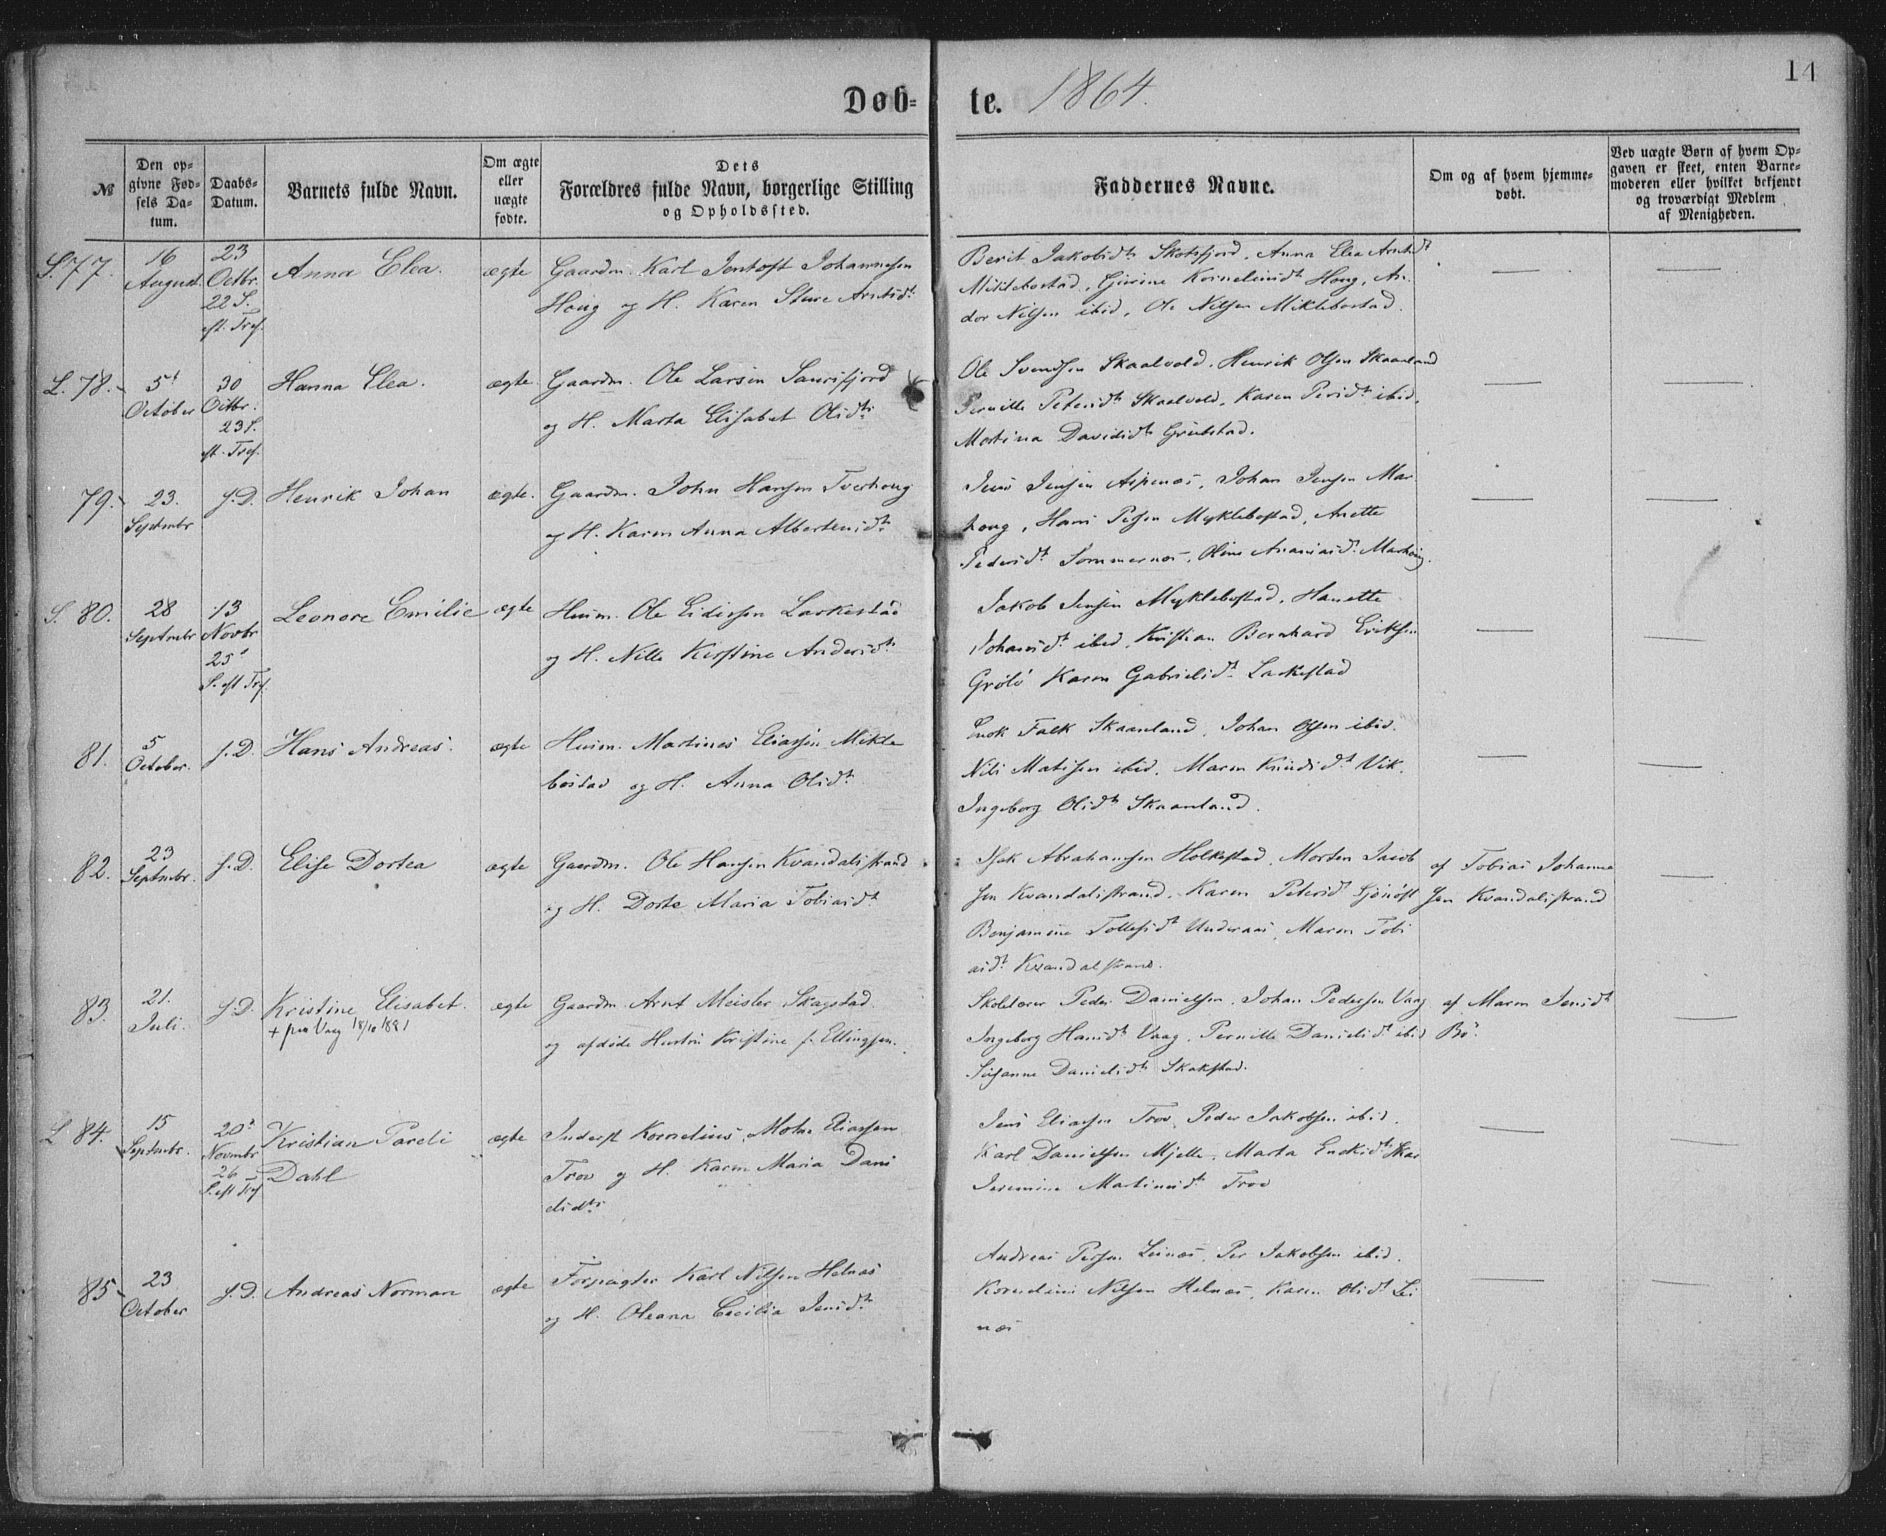 Døb-
te. 1864.
14
№
Den op-
givne Fød-
sels Da-
tum.
Daabs-
Datum.
Barnets fulde Navn.
Om ægte
eller
uægte
fødte.
Dets
Forældres fulde Navn, borgerlige Stilling
og Opholdssted.
Faddernes Navne.
Om og af hvem hjemme-
døbt.
Ved uægte Børn af hvem Op-
gaven er skeet, enten Barne-
moderen eller hvilket bekjendt
og troværdigt Medlem
af Menigheden.
S. 77.
16
August.
23
Octbr.
22 S.
eft. Tref.
Anna Elea.
ægte
Gaardm. Karl Jentoft Johannessen
Houg og H. Karen Sture Arntsdt.
Berit Jakobsdt. Skotsfjord, Anna Elea Arntsdt.
Miklebostad, Gurine Korneliusdt. Houg, An-
dor Nilsen ibid, Ole Nilsen Miklebostad.
L. 78.
5t
October
30
Octbr.
23 S.
eft. Tref.
Hanna Elea.
ægte
Gaardm. Ole Larsen Saursfjord
og H. Marta Elisabet Olsdt.
Ole Svendsen Skaalvold, Henrik Olsen Skaanland
Pernille Petersdt. Skaalvold, Karen Persdt. ibid,
Martina Davidsdt. Grubstad.
79.
23.
Septmbr
s.D.
Henrik Johan
ægte.
Gaardm. John Hansen Tverhoug
og H. Karen Anna Albertensdt.
Jens Jensen Aspenæs, Johan Jensen Mar
houg, Hans Pesen Myklebostad, Anette
Pedersdt. Sommernæs, Oline Ananiasdt. Marhoug.
S. 80.
28
Septmbr
13
Novbr
25
S. eft Tref.
Leonore Emilie
ægte
Husm. Ole Eidissen Laskestad
og H. Nille Kirstine Andersdt.
Jakob Jensen Myklebostad, Hanette
Johansdt. ibid, Kristian Bernhard Eriksen
Grøtø Karen Gabrielsdt. Laskestad
81.
5
October.
s.D.
Hans Andreas.
ægte
Husm. Martines Eliassen Mikle
bostad og H. Anna Olsdt.
Enok Falk Skaanland, Johan Olsen ibid.
Nils Matisen ibid, Maren Knudsdt. Vik,
Ingeborg Olsdt. Skaanland.
82.
23
Septmbr.
s.D.
Elise Dortea
ægte
Gaardm. Ole Hansen Kvandalsstrand
og H. Dorte Maria Tobiasdt.
Isak Abrahamsen Holkestad, Morten Jacob
sen Kvandalsstrand, Karen Petersdt
Benjamine Tollefsdt Underaas, Maren Tobi
asdt. Kvandalstrand.
af Tobias Johanne
sen Kvandalsstrand
83.
21.
Juli.
s.D.
Kristine Elisabet.
+ paa Vaag 18/10 1881
ægte
Gaardm. Arnt Meisler Skagstad
og afdøde Hustru Kristine f. Ellingsen.
Skolelærer Peder Danielsen, Johan Pedersen Vaag
Ingeborg Hansdt. Vaag, Pernille Danielsdt. ibid
Susanne Danielsdt. Skakstad.
af Maren Jensdt
Bø.
L 84.
15
Septmbr.
20
Novmbr
26
S. eft Tref
Kristian Pareli
Dahl
ægte
Inderst Kornelius Eliassen
Trov og H. Karen Maria Dani
elsdt.
Jens Eliassen Trov, Peder Jakobsen ibid.
Karl Danielsen Mjelle, Marta
Jeremine Martinusdt. Trov
85
23
October
s.D.
Andreas Norman
ægte
Forpagter Karl Nilsen Helnæs
og H. Oleana Cecilia Jensdt.
Andreas Persen Leinæs, Per Jakobsen ibid.
Kornelius Nilsen Helnæs, Karen Olsdt. Lei
næs